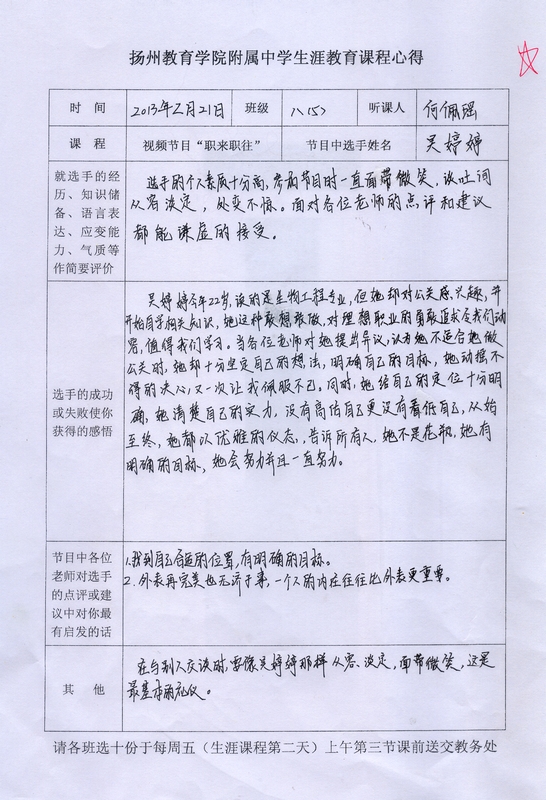 扬州教育学院附属中学生涯教育课程心得
时 间 2013年2月21日 班级 八(5) 听课人 何佩瑶
课 程 视频节目“职来职往” 节目中选手姓名 吴婷婷
就选手的经
历、知识储
备、语言表
达、应变能
力、气质等
作简要评价
选手的个人素质十分高,参加节目时一直面带微笑,谈吐间
从容淡定,处变不惊。面对各位老师的点评和建议
都能谦虚的接受。
选手的成功
或失败使你
获得的感悟
吴婷婷今年22岁,读的是生物工程专业,但她却对公关感兴趣,并
开始自学相关知识,她这种敢想敢做,对理想职业的勇敢追求令我们动
容,值得我们学习。当各位老师对她提出异议,认为她不适合她做
公关时,她却十分坚定自己的想法,明确自己的目标,她动摇不
得的决心,又一次让我佩服不已,同时,她给自己的定位十分明
确,她清楚自己的实力,没有高估自己更没有看低自己,从始
至终,她都以优雅的仪态,告诉所有人,她不是花瓶,她有
明确的目标,她会努力并且一直努力。
节目中各位
老师对选手
的点评或建
议中对你最
有启发的话
1.找到自己合适的位置,有明确的目标。
2.外表再完美也无济于事,一个人的内在往往比外表更重要。
其 他
在与别人交谈时,要像吴婷婷那样从容、淡定,面带微笑,这是
最基本的礼仪。
请各班选十份于每周五(生涯课程第二天)上午第三节课前送交教务处